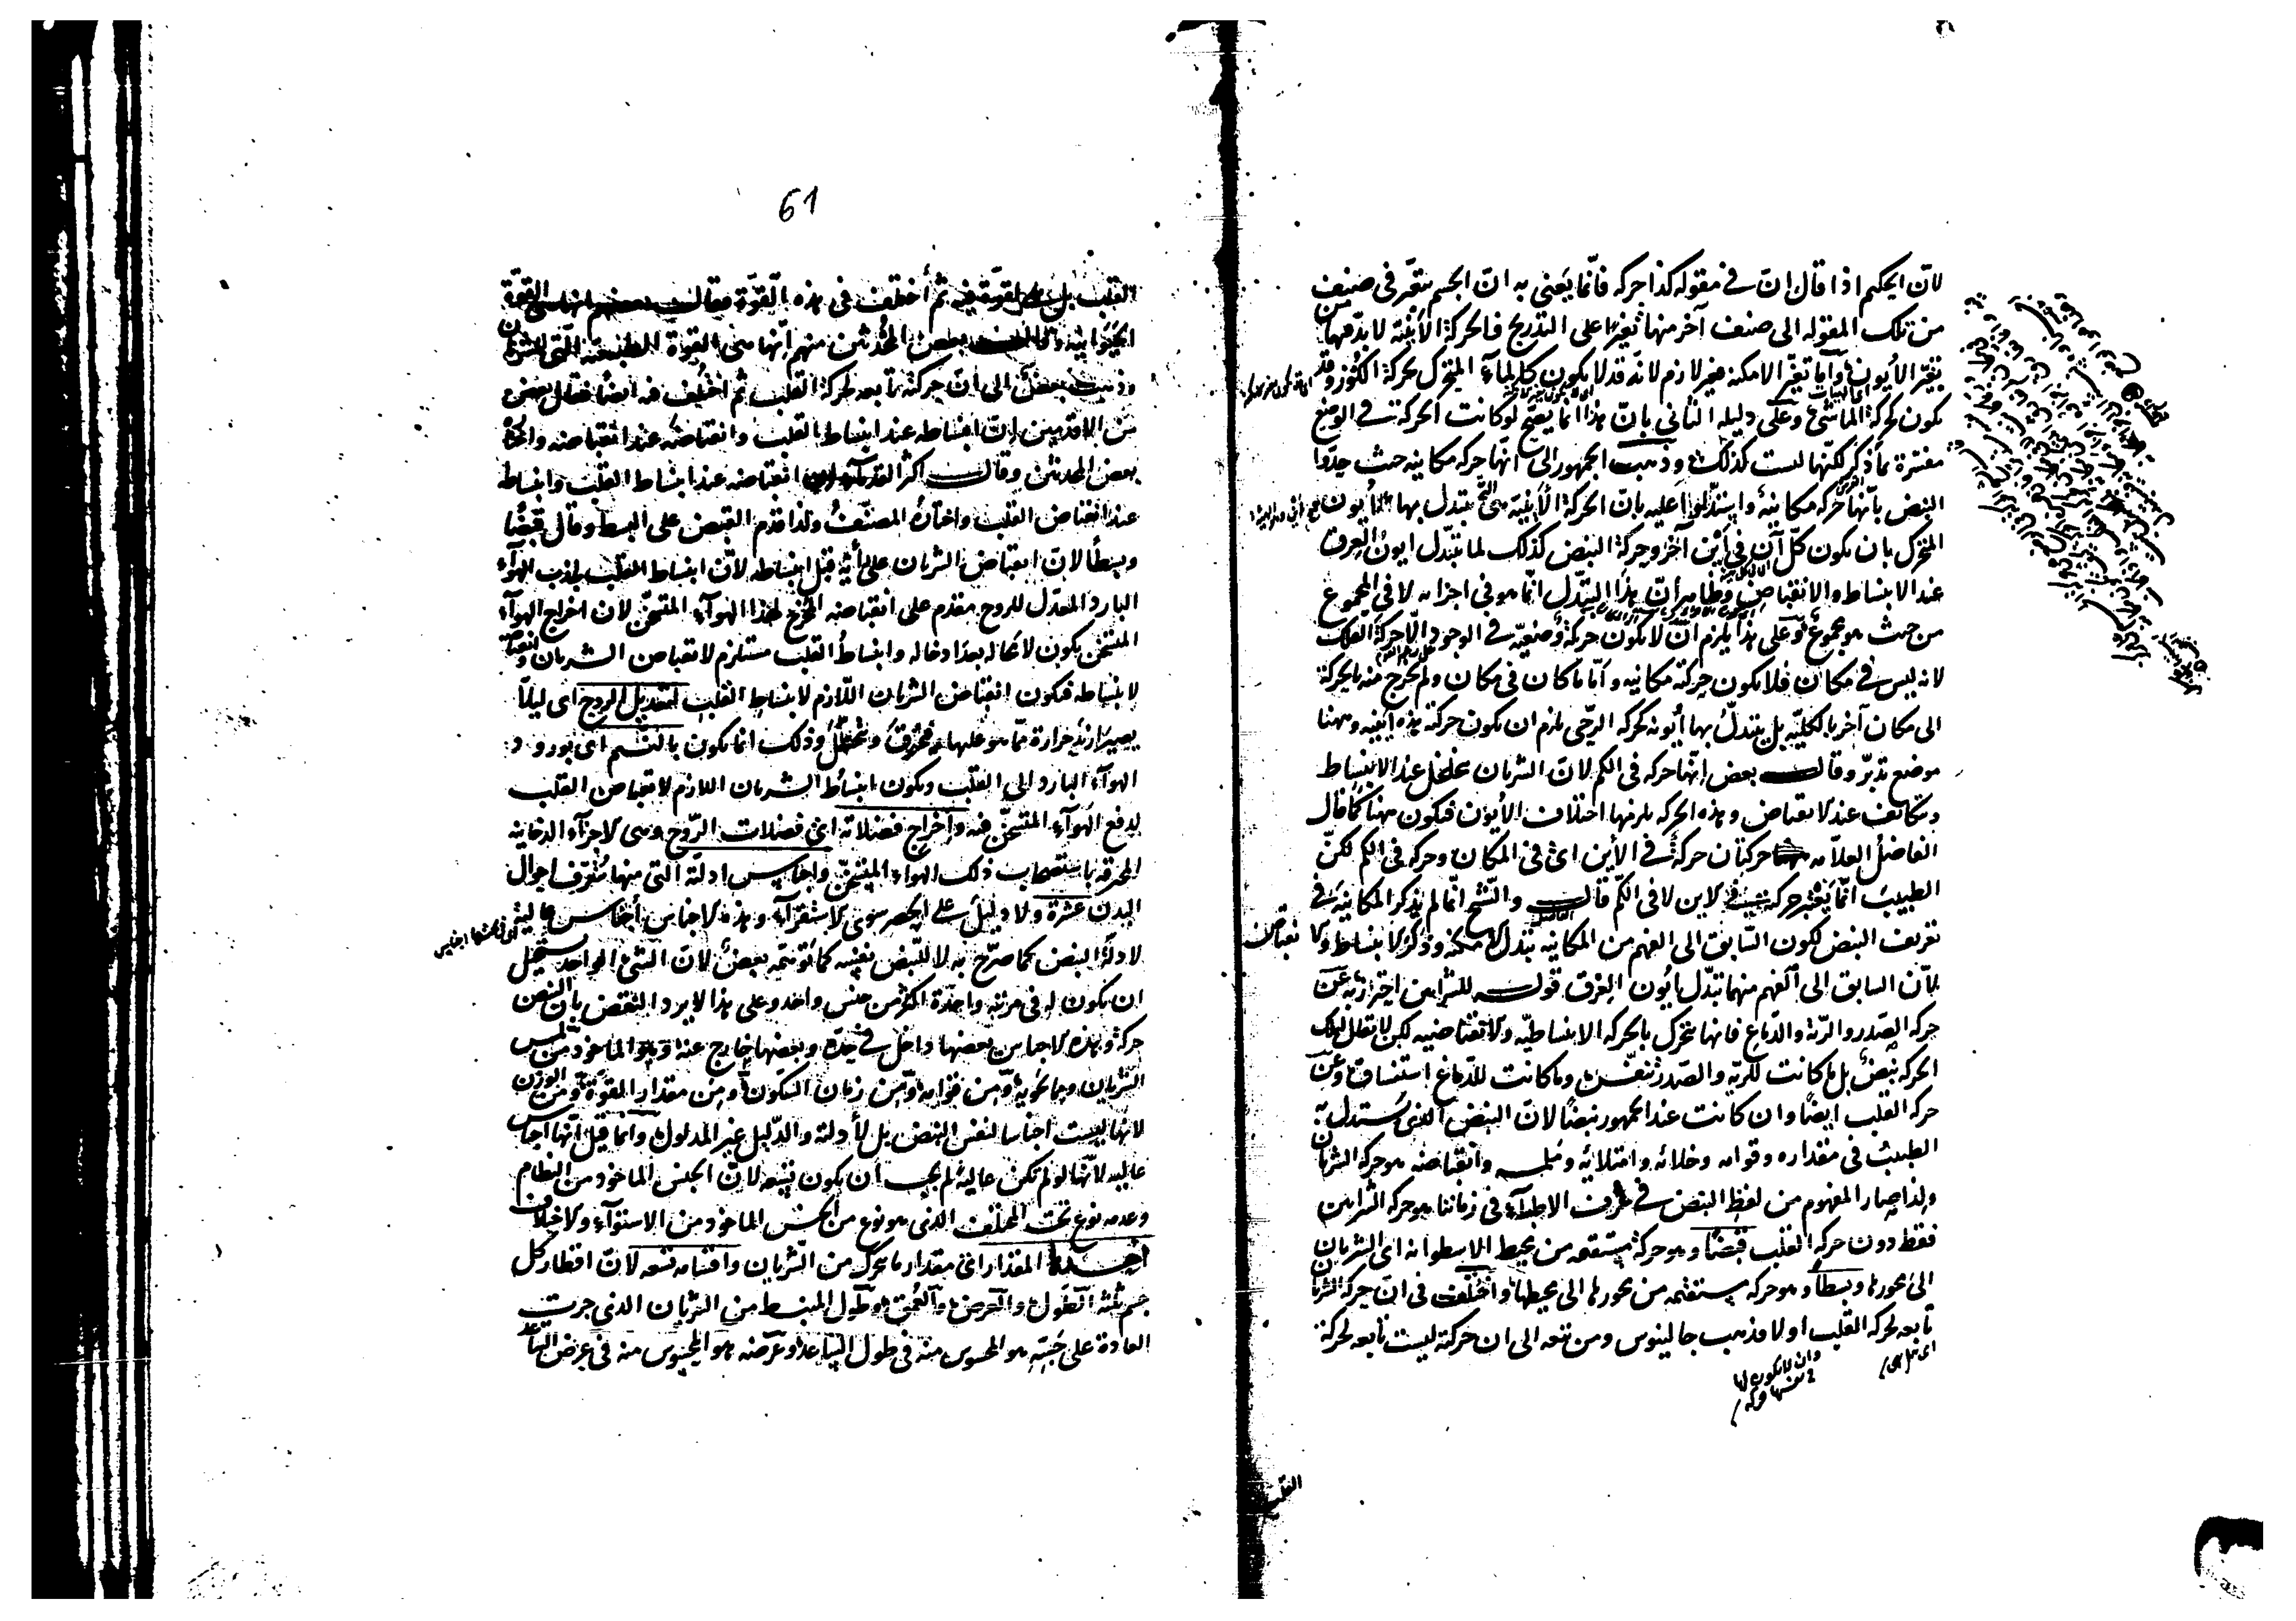 لان الحكيم اذا قال ان فى مقوله كذا حركه فانّما يعنى به ان الجسم يتغيّر فى صنف
من تلك المقوله الى صنف آخر منها تغيرا على التدريج فالحركة الأينيّة لا بدّ فيها من
تغيّر الأيون وامّا تغيّر الامكنه فغير لازم لانه قد لا يكون كالماء المتحرك بحركة الكوز وقد
يكون كحركة الماشى وعلى دليله الثانى بانّ هذا انما يصحّ لو كانت الحركة فى الوضع
مفسّرة بما ذكر لكنّها ليست كذلك وذهب الجمهور الى انّها حركه مكانيه حيث حدّوا
النبض بانّها حركه مكانيه واستدلّوا عليه بانّ الحركة الأينيّة هى التى يتبدل بها أيون
المتحرك بان يكون كلّ آن فى أين آخر وحركة النبض كذلك لما يتبدّل ايون العرق
عند الانبساط والانقباض وظاهر أنّ هذا التبدّل انّما هو فى اجزائه لا فى المجموع
من حيث هو مجموع وعلى هذا يلزم ان لا يكون حركة وضعيّه فى الوجود الّا حركة الفلك
لانه ليس فى مكان فلا يكون حركته مكانيه وامّا ما كان فى مكان ولم يخرج منه بالحركة
الى مكان آخر بالكليّه بل يتبدّل بها أيونه كحركه الرحى يلزم ان يكون حركة هذه أينيه وههنا
موضع تدبّر وقال بعض انّها حركه فى الكم لان الشريان يتخلخل عند الانبساط
ويتكاثف عند الانقباض وهذه الحركه يلزمها اختلاف الأيون فيكون ههنا كما قال
الفاضل العلّامه حركتان حركة فى الأين اى فى المكان وحركه فى الكم لكنّ
الطبيب انّما يعتبر حركة فى الاين لا فى الكمّ قال والشيخ انّما لم يذكر المكانيه فى
تعريف النبض لكون السّابق الى الفهم من المكانيه تبدل الامكنه وذكر الانبساط والانقباض
لانّ السابق الى الفهم منهما تبدّل أيون العرق قوله للشرايين احترز به عن
حركه الصدر والرئة والدّماغ فانها تتحرك بالحركه الانبساطيّه والانقباضيه لكن لا يقال لتلك
الحركه نبض بل ما كانت للرئة والصدر تنفّس وما كانت للدّماغ استنشاق وعن
حركه القلب ايضًا وان كانت عند الجمهور نبضًا لانّ النبض الذى يستدل به
الطبيب فى مقداره وقوامه وخلائه وامتلائه وملمسه وانقباضه هو حركة الشريان
ولذا صار المفهوم من لفظ النبض فى عرف الاطباء فى زماننا هو حركه الشرايين
فقط دون حركه القلب قبضًا وهو حركة مستقيمه من محيط الاسطوانه اى الشريان
الى محورها وبسطا وهو حركه مستقيمه من محورها الى محيطها واختلف فى انّ حركة الشريان
تابعه لحركه القلب او لا فذهب جالينوس ومن تبعه الى ان حركة ليست تابعه لحركة
وان لا يكون لها
فى نفسها حركه
القلب
61
القلب بل لقوّة فيه ثم أختلف فى هذه القوّة فقال بعضهم انها هى القوة
الحيوانيه وقال بعض المحدثين منهم انّها هى القوة الطبيعيّة التى للشريان
وذهب بعض الى انّ حركته تابعه لحركة القلب ثم اختلف فيه ايضًا فقال بعض
من الاقدمين انّ انبساطه عند انبساط القلب وانقباضه عند انقباضه واختاره
بعض المحدثين وقال اكثر القدماء انقباضه عند انبساط القلب وانبساطه
عند انقباض القلب واختاره المصنّف ولذا قدم القبض على البسط وقال قبضًا
وبسطًا لانّ انقباض الشريان على رأيه قبل انبساطه لانّ انبساط القلب لجذب الهوآء
البارد المعدّل للروح مقدم على انقباضه المخرج لهذا الهوآء المتسخّن لان اخراج الهوآء
المتسخّن يكون لا محاله بعد ادخاله وانبساط القلب مستلزم لانقباض الشريان وانقباضه
لانبساطه فيكون انقباض الشريان اللّازم لانبساط القلب لتعديل الروح اى ليلّا
يصير ازيد حرارة ممّا هو عليها فيحترق ويتحلّل وذلك انما يكون بالنسيم اى بورود
الهوآء البارد الى القلب ويكون انبساط الشريان اللازم لانقباض القلب
لدفع الهوآء المتسخّن فيه واخراج فضلاته اى فضلات الرّوح وهى الاجزآء الدخانيه
المحترقه باستصحاب ذلك الهواء المتسخّن واجناس ادلّته التى منها يتعرّف احوال
البدن عشرة ولا دليل على الحصر سوى الاستقرآء وهذه الاجناس أجناس عالية
لادلّة النبض كما صرّح به لا للنّبض نفسه كما توهّمه بعض لانّ الشئ الواحد يستحيل
ان يكون له فى مرتبه واحدة اكثر من جنس واحد وعلى هذا لا يرد النقض بانّ النبض
حركة وهذه الاجناس بعضها داخل فى حدّه وبعضها خارج عنه وهو الماخوذ من ملمس
الشريان وما يحويه ومن قوامه ومن زمان السكون ومن مقدار القوّة ومن الوزن
لانها ليست اجناسا لنفس النبض بل لأدلته والدّليل غير المدلول وانما قيل انّها اجناس
عاليه لانّها لو لم تكن عالية لم يجب ان يكون تسعه لانّ الجنس الماخوذ من النظام
وعدمه نوع تحت المختلف الذى هو نوع من الجنس الماخوذ من الاستوآء والاختلاف
احدها المقدار اى مقدار ما يتحرك من الشريان واقسامه تسعه لانّ اقطار كل
جسم ثلثه الطول والعرض والعمق وطول المنبسط من الشريان الذى جرت
العادة على جسّه هو المحسوس منه فى طول السّاعد وعرضه هو المحسوس منه فى عرض السّاعد